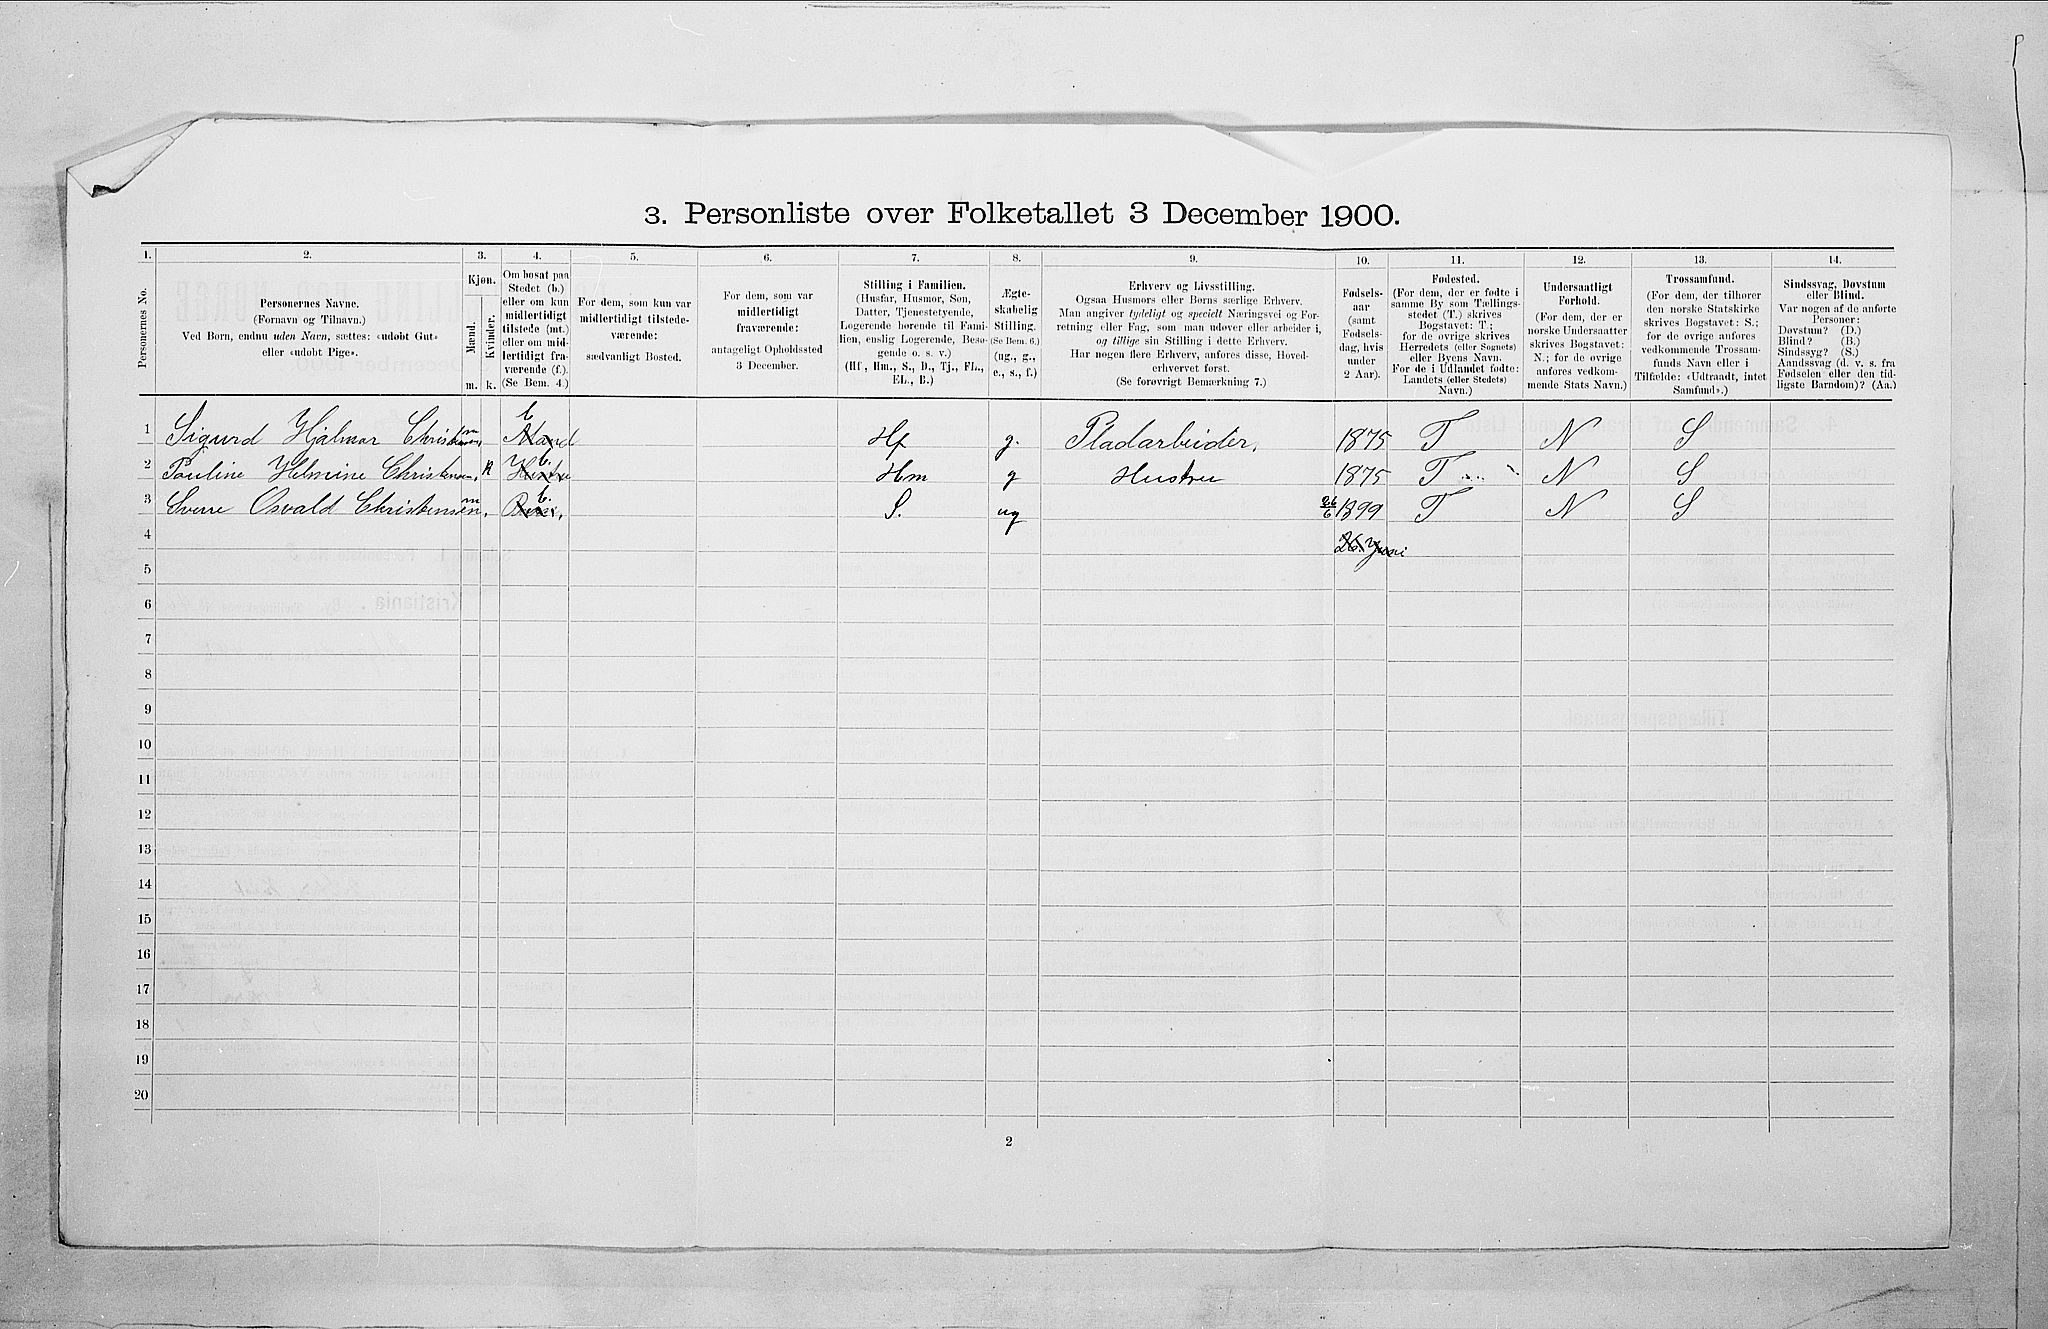 3. Personliste over Folketallet 3 December 1900.
1. 2. 3. 4. 5. 6. 7. 8. 9. 10. 11. 12. 13. 14.
Personernes No.
Personernes Navne.
(Fornavn og Tilnavn.)
Ved Børn, endnu uden Navn, sættes: «udøbt Gut»
eller «udøbt Pige».
Kjøn.
Mænd.
Kvinder.
m. k.
Om bosat paa
Stedet (b.)
eller om kun
midlertidigt
tilstede (mt.)
eller om mid-
lertidigt fra-
værende (f.).
(Se Bem. 4.)
For dem, som kun var
midlertidigt tilstede-
værende:
sædvanligt Bosted.
For dem, som var
midlertidigt
fraværende:
antageligt Opholdssted
3 December.
Stilling i Familien.
(Husfar, Husmor, Søn,
Datter, Tjenestetyende,
Logerende hørende til Fami-
lien, enslig Logerende, Besø-
gende o. s. v.)
(Hf., Hm., S., D., Tj., FL.,
EL., B.)
Ægte-
skabelig
Stilling.
(Se Bem. 6.)
(ug., g.,
e., s., f.)
Erhverv og Livsstilling.
Ogsaa Husmors eller Børns særlige Erhverv.
Man angiver tydeligt og specielt Næringsvei og For-
retning eller Fag, som man udøver eller arbeider i,
og tillige sin Stilling i dette Erhverv.
Har nogen flere Erhverv, anføres disse, Hoved-
erhvervet først.
(Se forøvrigt Bemærkning 7.)
Fødsels-
aar
(samt
Fødsels-
dag, hvis
under
2 Aar).
Fødested.
(For dem, der er fødte i
samme By som Tællings-
stedet (T.) skrives
Bogstavet: T.;
for de øvrige skrives
Herredets (eller Sognets)
eller Byens Navn.
For de i Udlandet fødte:
Landets (eller Stedets)
Navn.)
Undersaatligt
Forhold.
(For dem, der er
norske Undersaatter
skrives Bogstavet:
N.; for de øvrige
anføres vedkom-
mende Stats Navn.)
Trossamfund.
(For dem, der tilhører
den norske Statskirke
skrives Bogstavet: S.;
for de øvrige anføres
vedkommende Trossam-
funds Navn eller i
Tilfælde: «Udtraadt, intet
Samfund».)
Sindssvag, Døvstum
eller Blind.
Var nogen af de anførte
Personer:
Døvstum? (D.)
Blind? (B.)
Sindssyg? (S.)
Aandssvag (d. v. s. fra
Fødselen eller den tid-
ligste Barndom)? (Aa.)
1 Sigurd Hjalmar Christensen, m b Mand Hf g. Pladarbeider, 1875 T N S
2 Pauline Helmine Christensen, k b. Hustru Hm g Hustru 1875 T N S
3 Sverre Osvald Christensen, m b. S. ug 26/6 1899 T N S
4 26. Juni
5
6
7
8
9
10
11
12
13
14
15
16
17
18
19
20
2